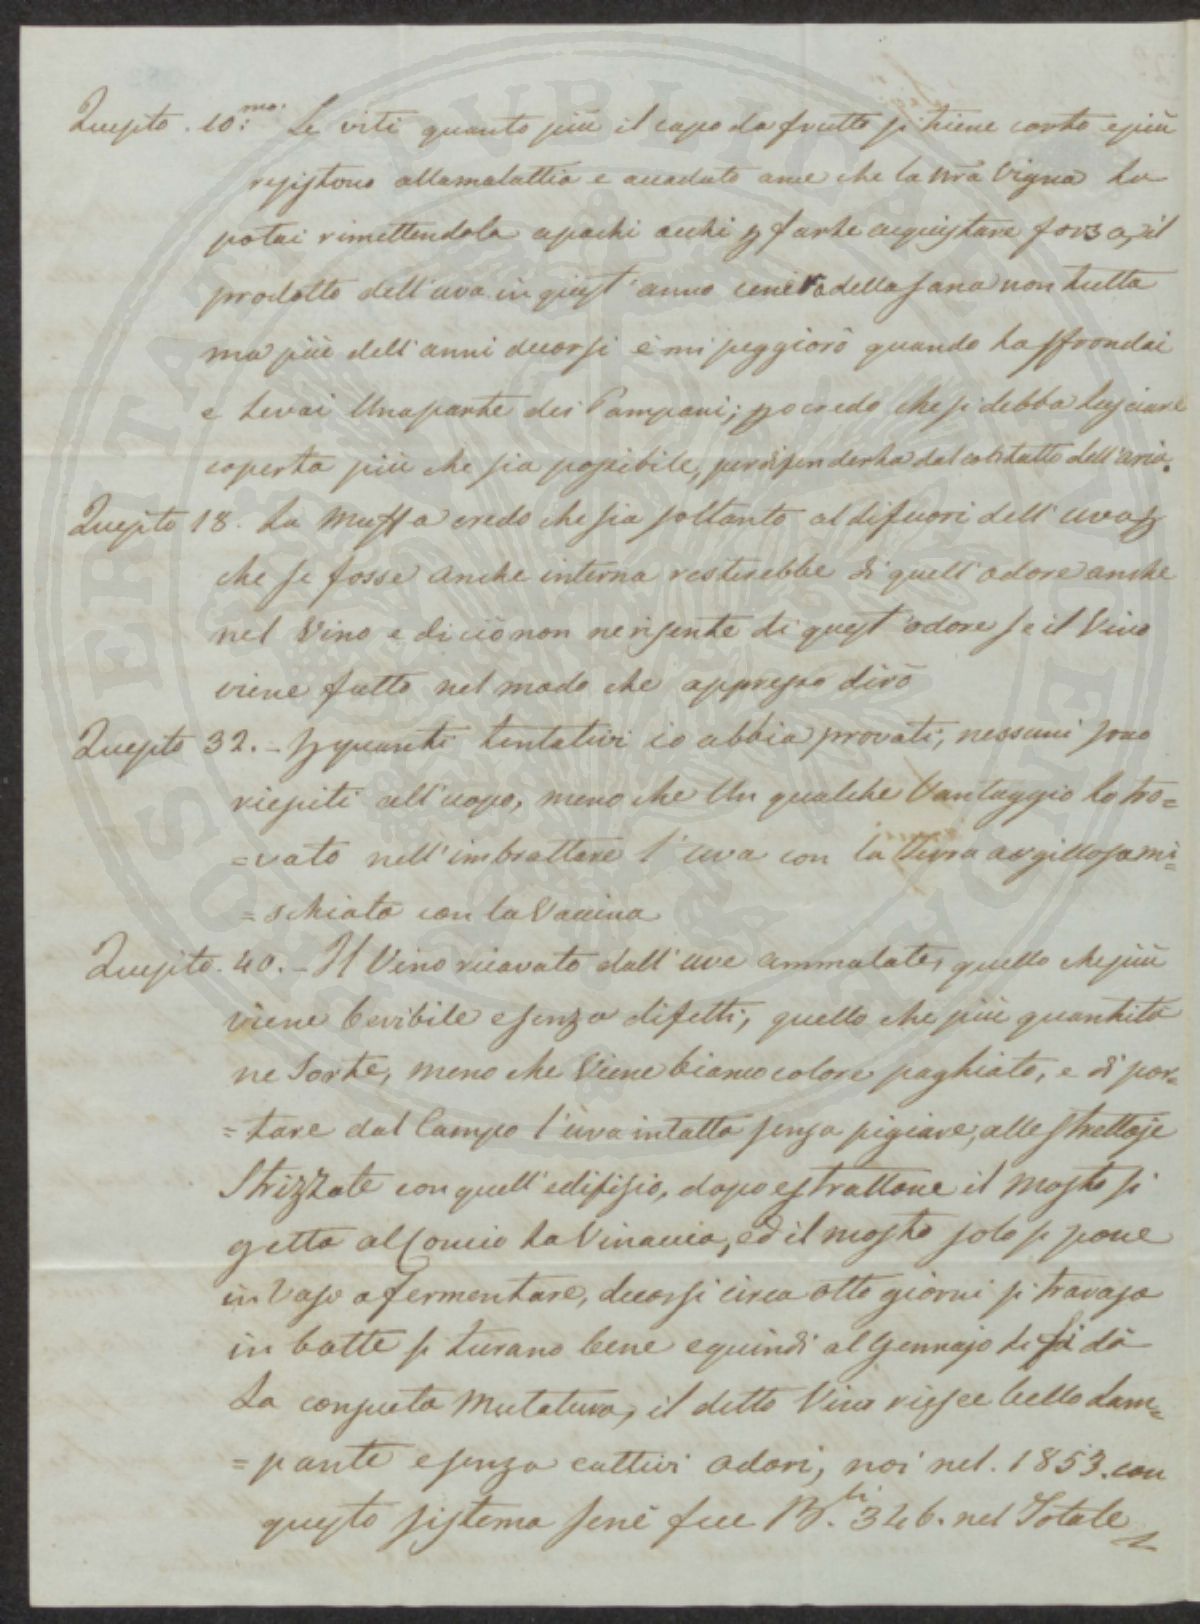 Quesito. 10:mo. Le viti quanto più il capo da frutto si tiene corto e più
resistono alla malattia e accaduto a me che la nra Vigna la
potai rimettendola a pochi occhi p farle acquistare forza, il
prodotto dell'uva in quest'anno cene era della sana non tutta
ma più dell'anni decorsi e mi peggiorò quando la sfrondai
e levai Una parte dei Pampani; p cio credo che si debba lasciare
coperta più che sia possibile, per difenderla dal contatto dell'aria.
Quesito 18. La Muffa credo che sia soltanto al difuori dell'uva p
che se fosse anche interna resterebbe di quell'odore anche
nel Vino e di ciò non ne risente di quest'odore se il Vino
viene fatto nel modo che appresso dirò
Quesito 32. - P quanti tentativi io abbia provati, nessuni sono
riesciti all'uopo, meno che Un qualche Vantaggio lo tro=
=vato nell'imbrattare l'uva con la terra argillosa mi=
=schiata con la Vaccina
Quesito. 40. - Il Vino ricavato dall'uve ammalate, quello che più
viene bevibile e senza difetti, quello che più quantità
ne sorte, meno che Viene bianco colore pagliato, e di por=
=tare dal Campo l'uva intatta senza pigiare, alle Strettoje
Strizzate con quell'edifizio, dopo estrattone il Mosto si
getta al Concio la Vinaccia, ed il mosto solo si pone
in Vaso a fermentare, decorsi circa otto giorni si travasa
in botte si turano bene e quindi al Gennajo li si dà
La consueta Mutatura, il detto Vino riesce bello Lam=
=pante e senza cattivi odori, noi nel. 1853. con
questo sistema sene fece B.li 326. nel Totale